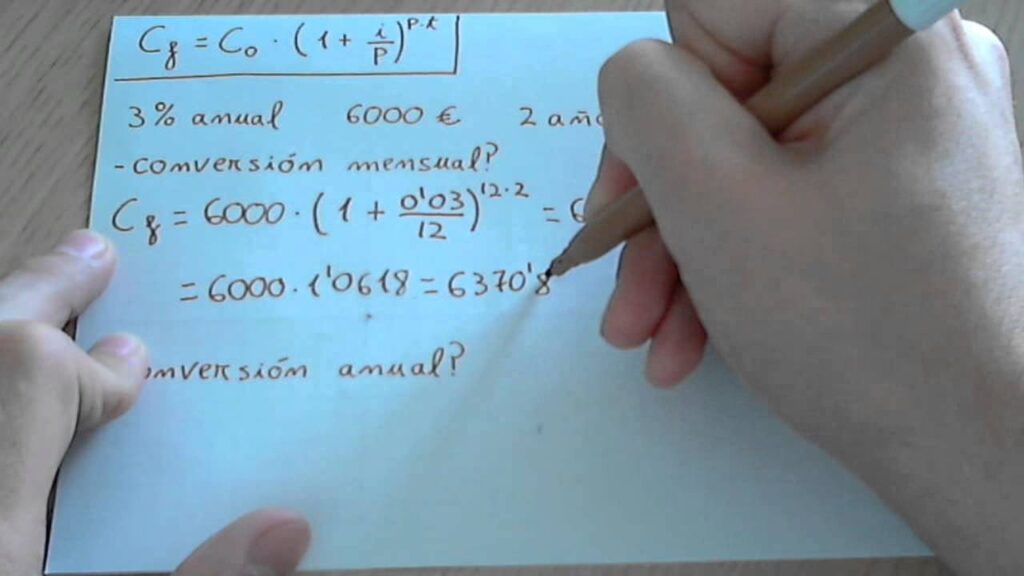 C_f = C_0 · (1 + i/p)^{p·t}
3% anual 6000 € 2
- conversión mensual?
C_f = 6000 · (1 + 0'03/12)^{12·2} =
= 6000 · 1'0618 = 6370'8
anual?